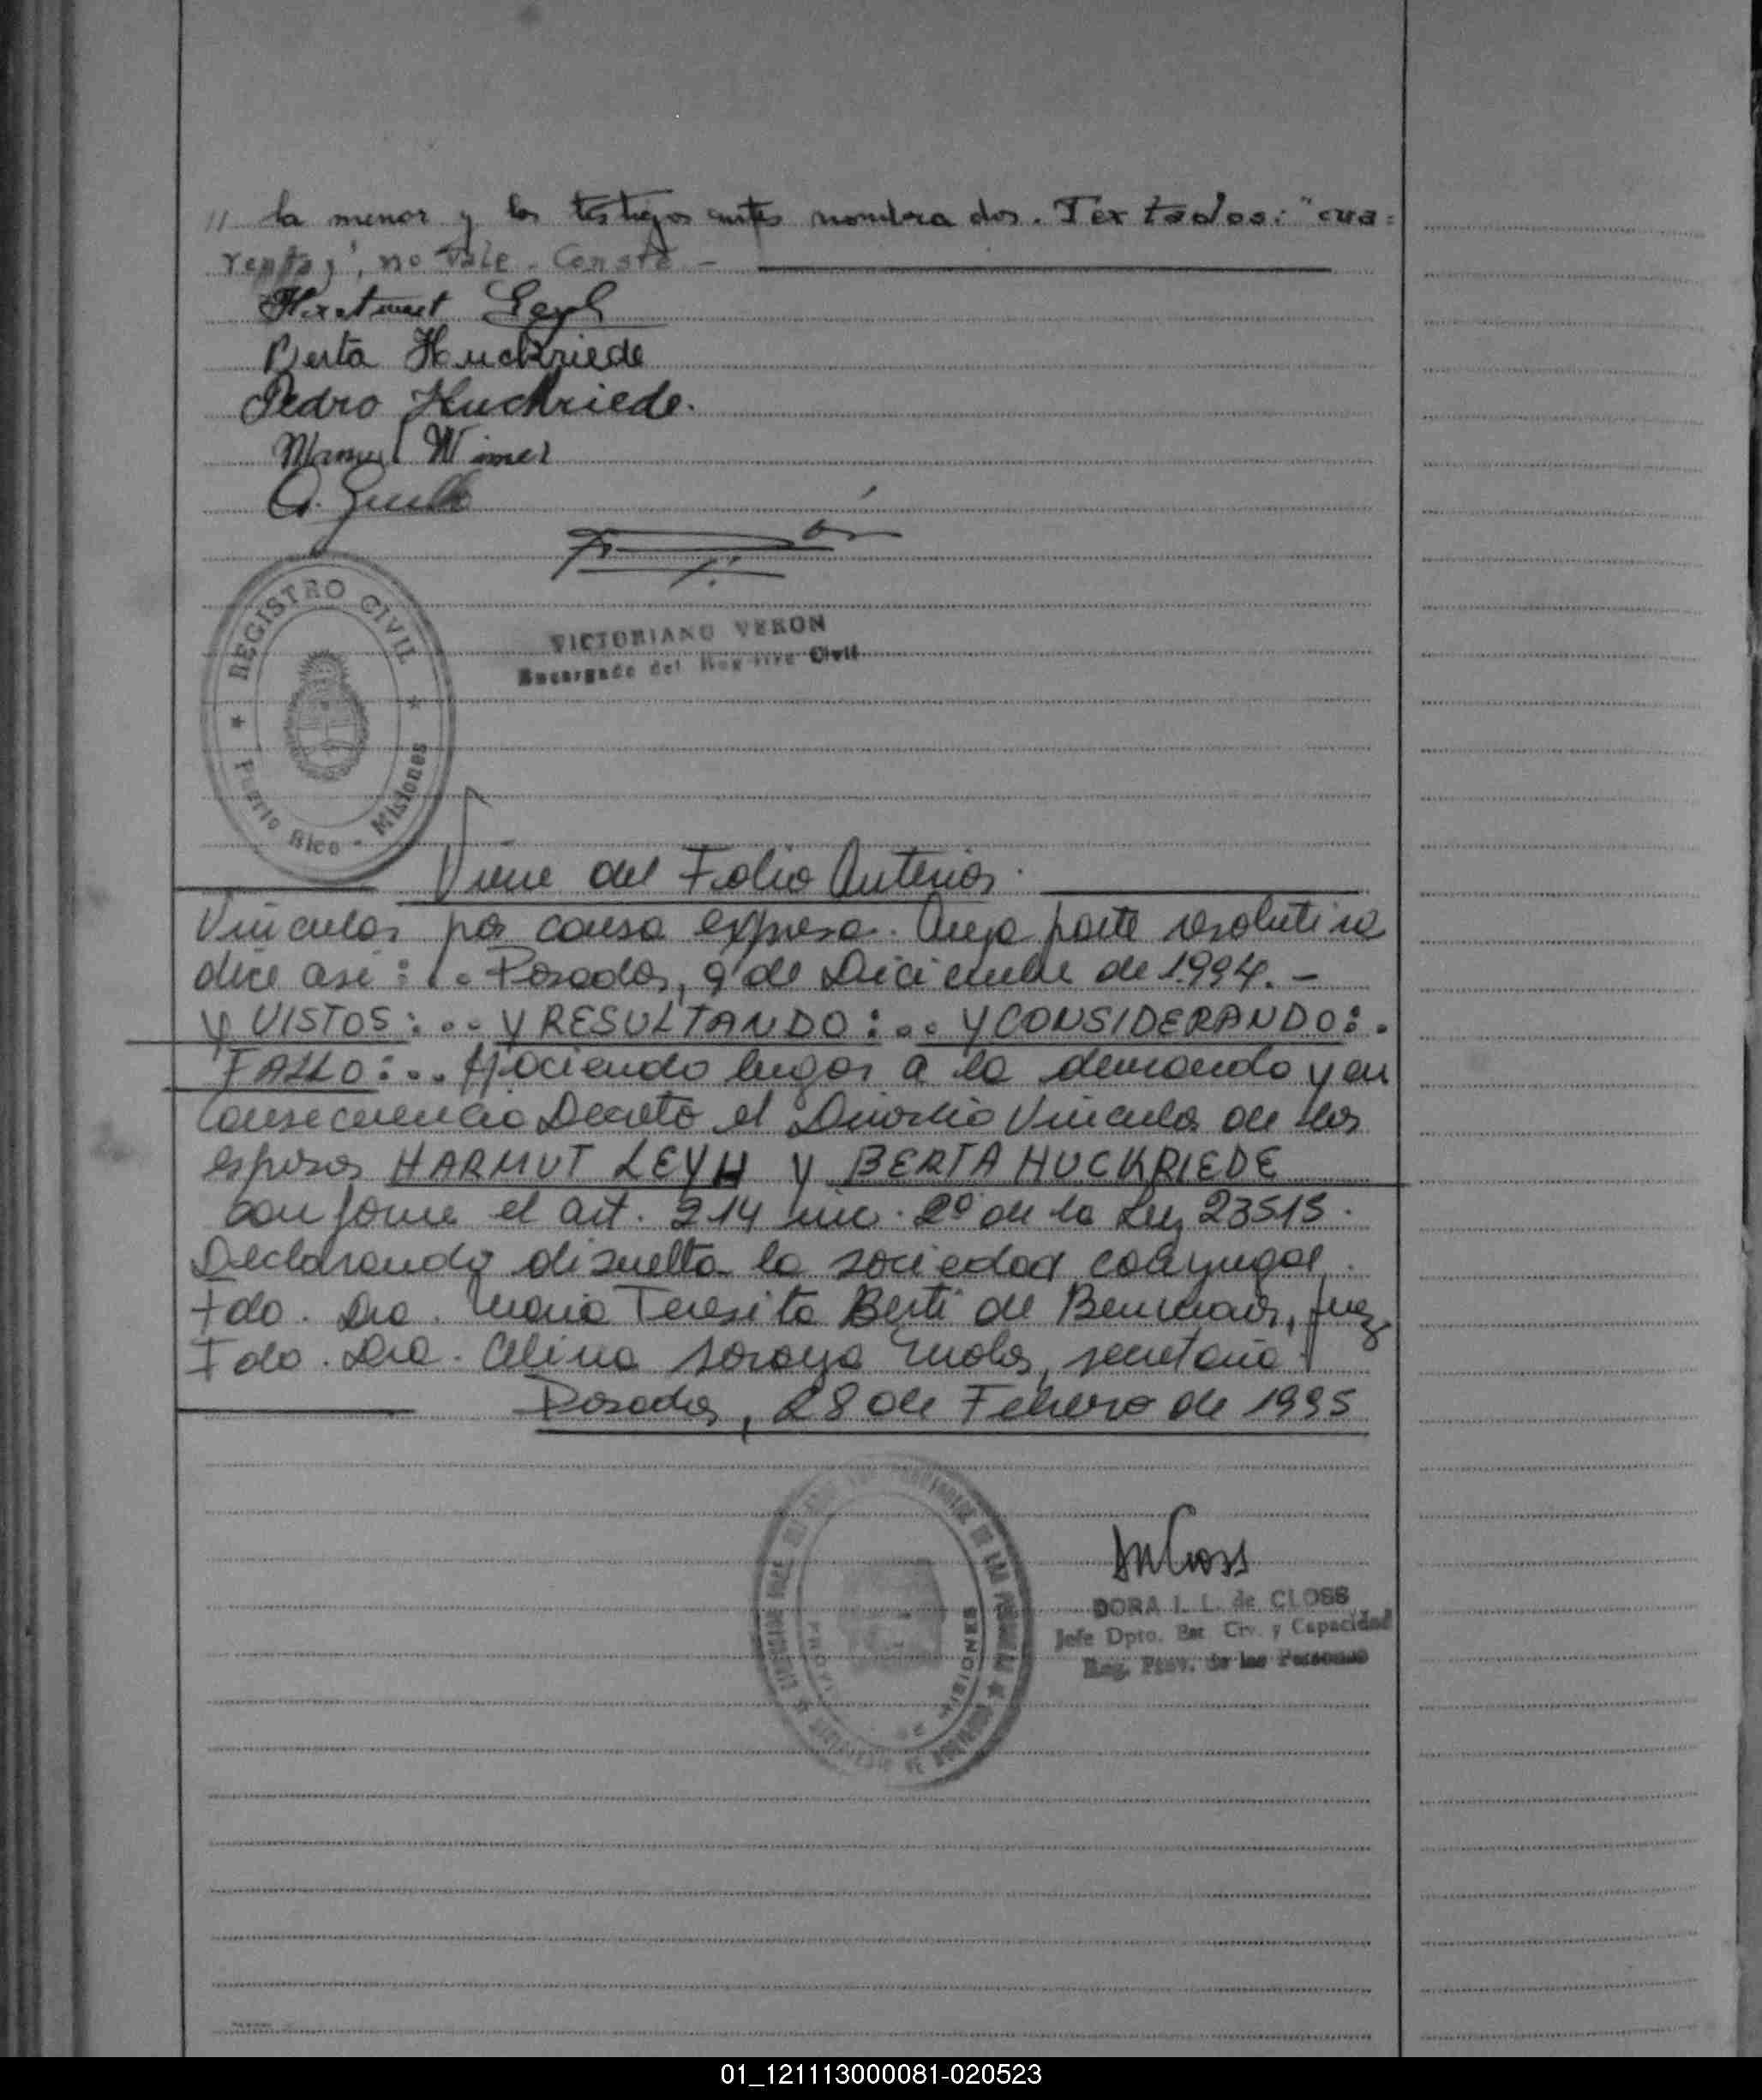 // la menor y los testigos antes nombrados. Textados: "cua=
renta y", no vale. Conste.-
Hartmut Leyh
Berta Huckriede
Pedro Huckriede.
Manuel Wimer
REGISTRO CIVIL
Puerto Rico - Misiones
VICTORIANO VERON
Encargado del Registro Civil
Viene del Folio Anterior.
Vincular por causa expresa. Cuya parte resolutiva
dice asi: .. Posadas, 9 de Diciembre de 1994.-
Y VISTOS: ... Y RESULTANDO: .. Y CONSIDERANDO: .
FALLO: .. Haciendo lugar a la demanda y en
consecuencia Decreto el Divorcio Vincular de los
esposos HARMUT LEYH y BERTA HUCKRIEDE
conforme el art. 214 inc. 2º de la Ley 23515.
Declarando disuelta la sociedad conyugal.
Fdo. Dra. Maria Teresita Berti de, Juez
Fdo. Dra. Celina Soraya, secretaria
Posadas, 28 de Febrero de 1995
MISIONES
DORA I. L. de CLOSS
Jefe Dpto. Est. Civ. y Capacidad
Reg. Prov. de las Personas
01_121113000081-020523